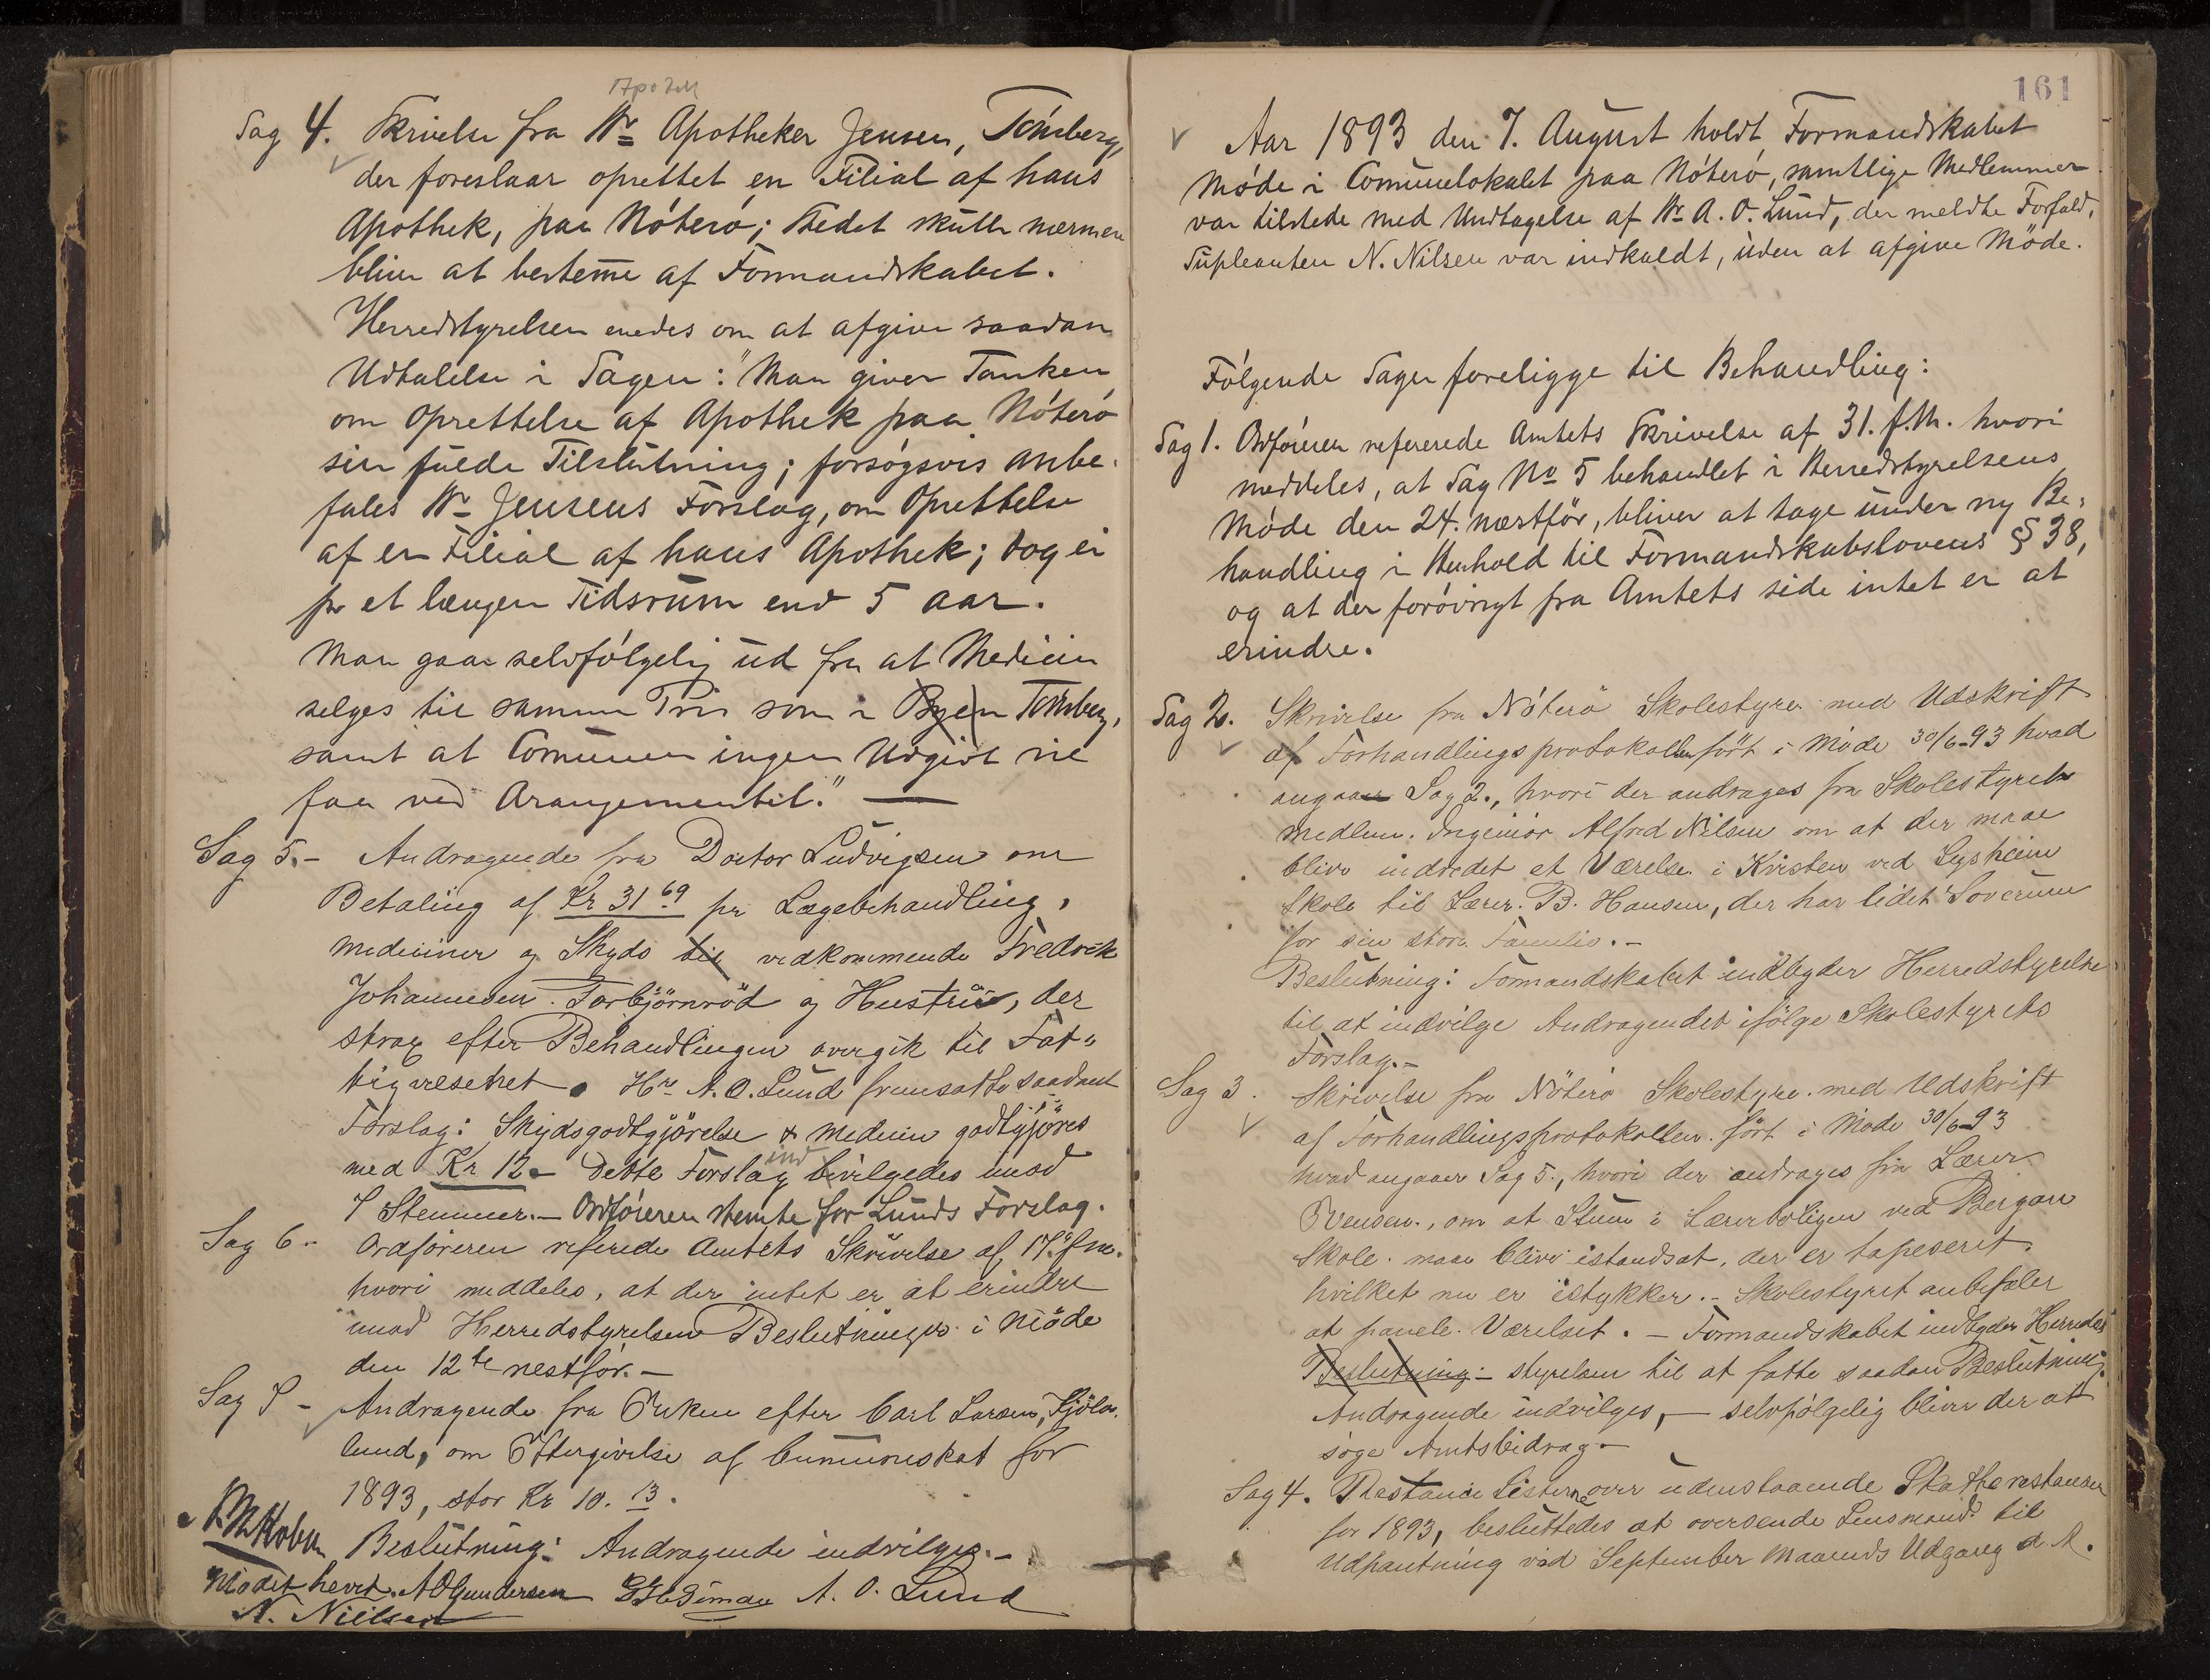 Apothek
Sag 4. Skrivelse fra Hr. Apotheker Jensen, Tönsberg,
der foreslaar oprettet en Filial af hans
Apothek, paa Nöterö; Stedet skulle nærmere
blive at bestemme af Formandskabet.
Herredstyrelsen enedes om at afgive saadan
Udtalelse i Sagen: "Man giver Tanken
om Oprettelse af Apothek paa Nöterö
sin fulde Tilslutning; forsögsvis anbe-
fales Hr. Jensens Forslag, om Oprettelse
af en Filial af hans Apothek; dog ei
for et længere Tidsrum end 5 aar.
Man gaar selvfölgelig ud fra at Medicin
selges til samme Pris som i Byen Tönsberg,
samt at Comunen ingen Udgivt vil
faa ved Arangementet." —
Sag 5.- Andragende fra Doctor Ludvigsen om
Betaling af Kr 31 69 for Lægebehandling,
Mediciner og Skyds til vedkommende Fredrik
Johannesen Torbjörnröd og Hustru, der
strax efter Behandlingen overgik til Fat-
tigvesenet. Hr. A. O. Lund fremsatte saadant
Forslag: Skydsgodtgjörelse & Medicin godtgjöres
med Kr 12.- Dette Forslag bevilgedes imod ind
7 Stemmer.- Ordföreren stemte for Lunds Forslag.
Sag 6.- Ordföreren referede Amtets Skrivelse af 17. f.m.
hvori meddeles, at der intet er at erindre
imod Herredstyrelsens Beslutninger i Möde
den 12te nestför.-
Sag 7 - Andragende fra Enken efter Carl Larsen, Fjölu-
lund, om Eftergivelse af Cummuneskat for
1893, stor Kr 10. 13.
Beslutning: Andragende indvilges.-
Mödet hevet. A O Gundersen A. O. Lund
N. Nielsen
161
Aar 1893 den 7. August holdt Formandskabet
Möde i Comunelokalet paa Nöterö, samtlige Medlemmer
var tilstede med Undtagelse af Hr. A. O. Lund, der meldte Forfald,
Supleanten N. Nilsen var indkaldt, uden at afgive Möde.
Fölgende Sager foreligge til Behandling:
Sag 1. Ordföreren refererede Amtets Skrivelse af 31. f.M. hvori
meddeles, at Sag No 5 behandlet i Herredstyrelsens
Möde den 24. næstför, bliver at tage under ny Be-
handling i Henhold til Formandskabslovens § 38,
og at der forövrigt fra Amtets side intet er at
erindre.
Sag 2. Skrivelse fra Nöterö Skolestyre med Udskrift
af Forhandlingsprotokollen fört i Möde 30/6-93 hvad
angaar Sag 2., hvori der andrages fra Skolestyrets
medlem. Ingeniör Alfred Nilsen om at der maa
blive indredet et Værelse i Kvisten ved Lysheim
Skole til Lærer B. Hansen, der har lidet Soverum
for sin store Familie.-
Beslutning: Formandskabet indbyder Herredstyrelse
til at indvilge Andragendet ifölge Skolestyrets
Forslag.-
Sag 3. Skrivelse fra Nöterö Skolestyre med Udskrift
af Forhandlingsprotokollen fört i Möde 30/6-93
hvad angaaer Sag 5., hvori der andrages fra Lærer
Evensen., om at Stuen i Lærerboligen ved Bergan
Skole maa blive istandsat, der er tapeseret,
hvilket nu er istykker.- Skolestyret anbefaler
at panele Værelset.- Formandskabet indbyder Herreds-
Beslutning:- styrelsen til at fatte saadan Beslutning:
Andragende indvilges, — selvfölgelig bliver der at
söge Amtsbidrag.-
Sag 4. Restance Listerne over udenstaaende Skatterestancer
for 1893, besluttedes at oversende Lensmand til
Udpantning ved September Maaneds Udgang d. A.